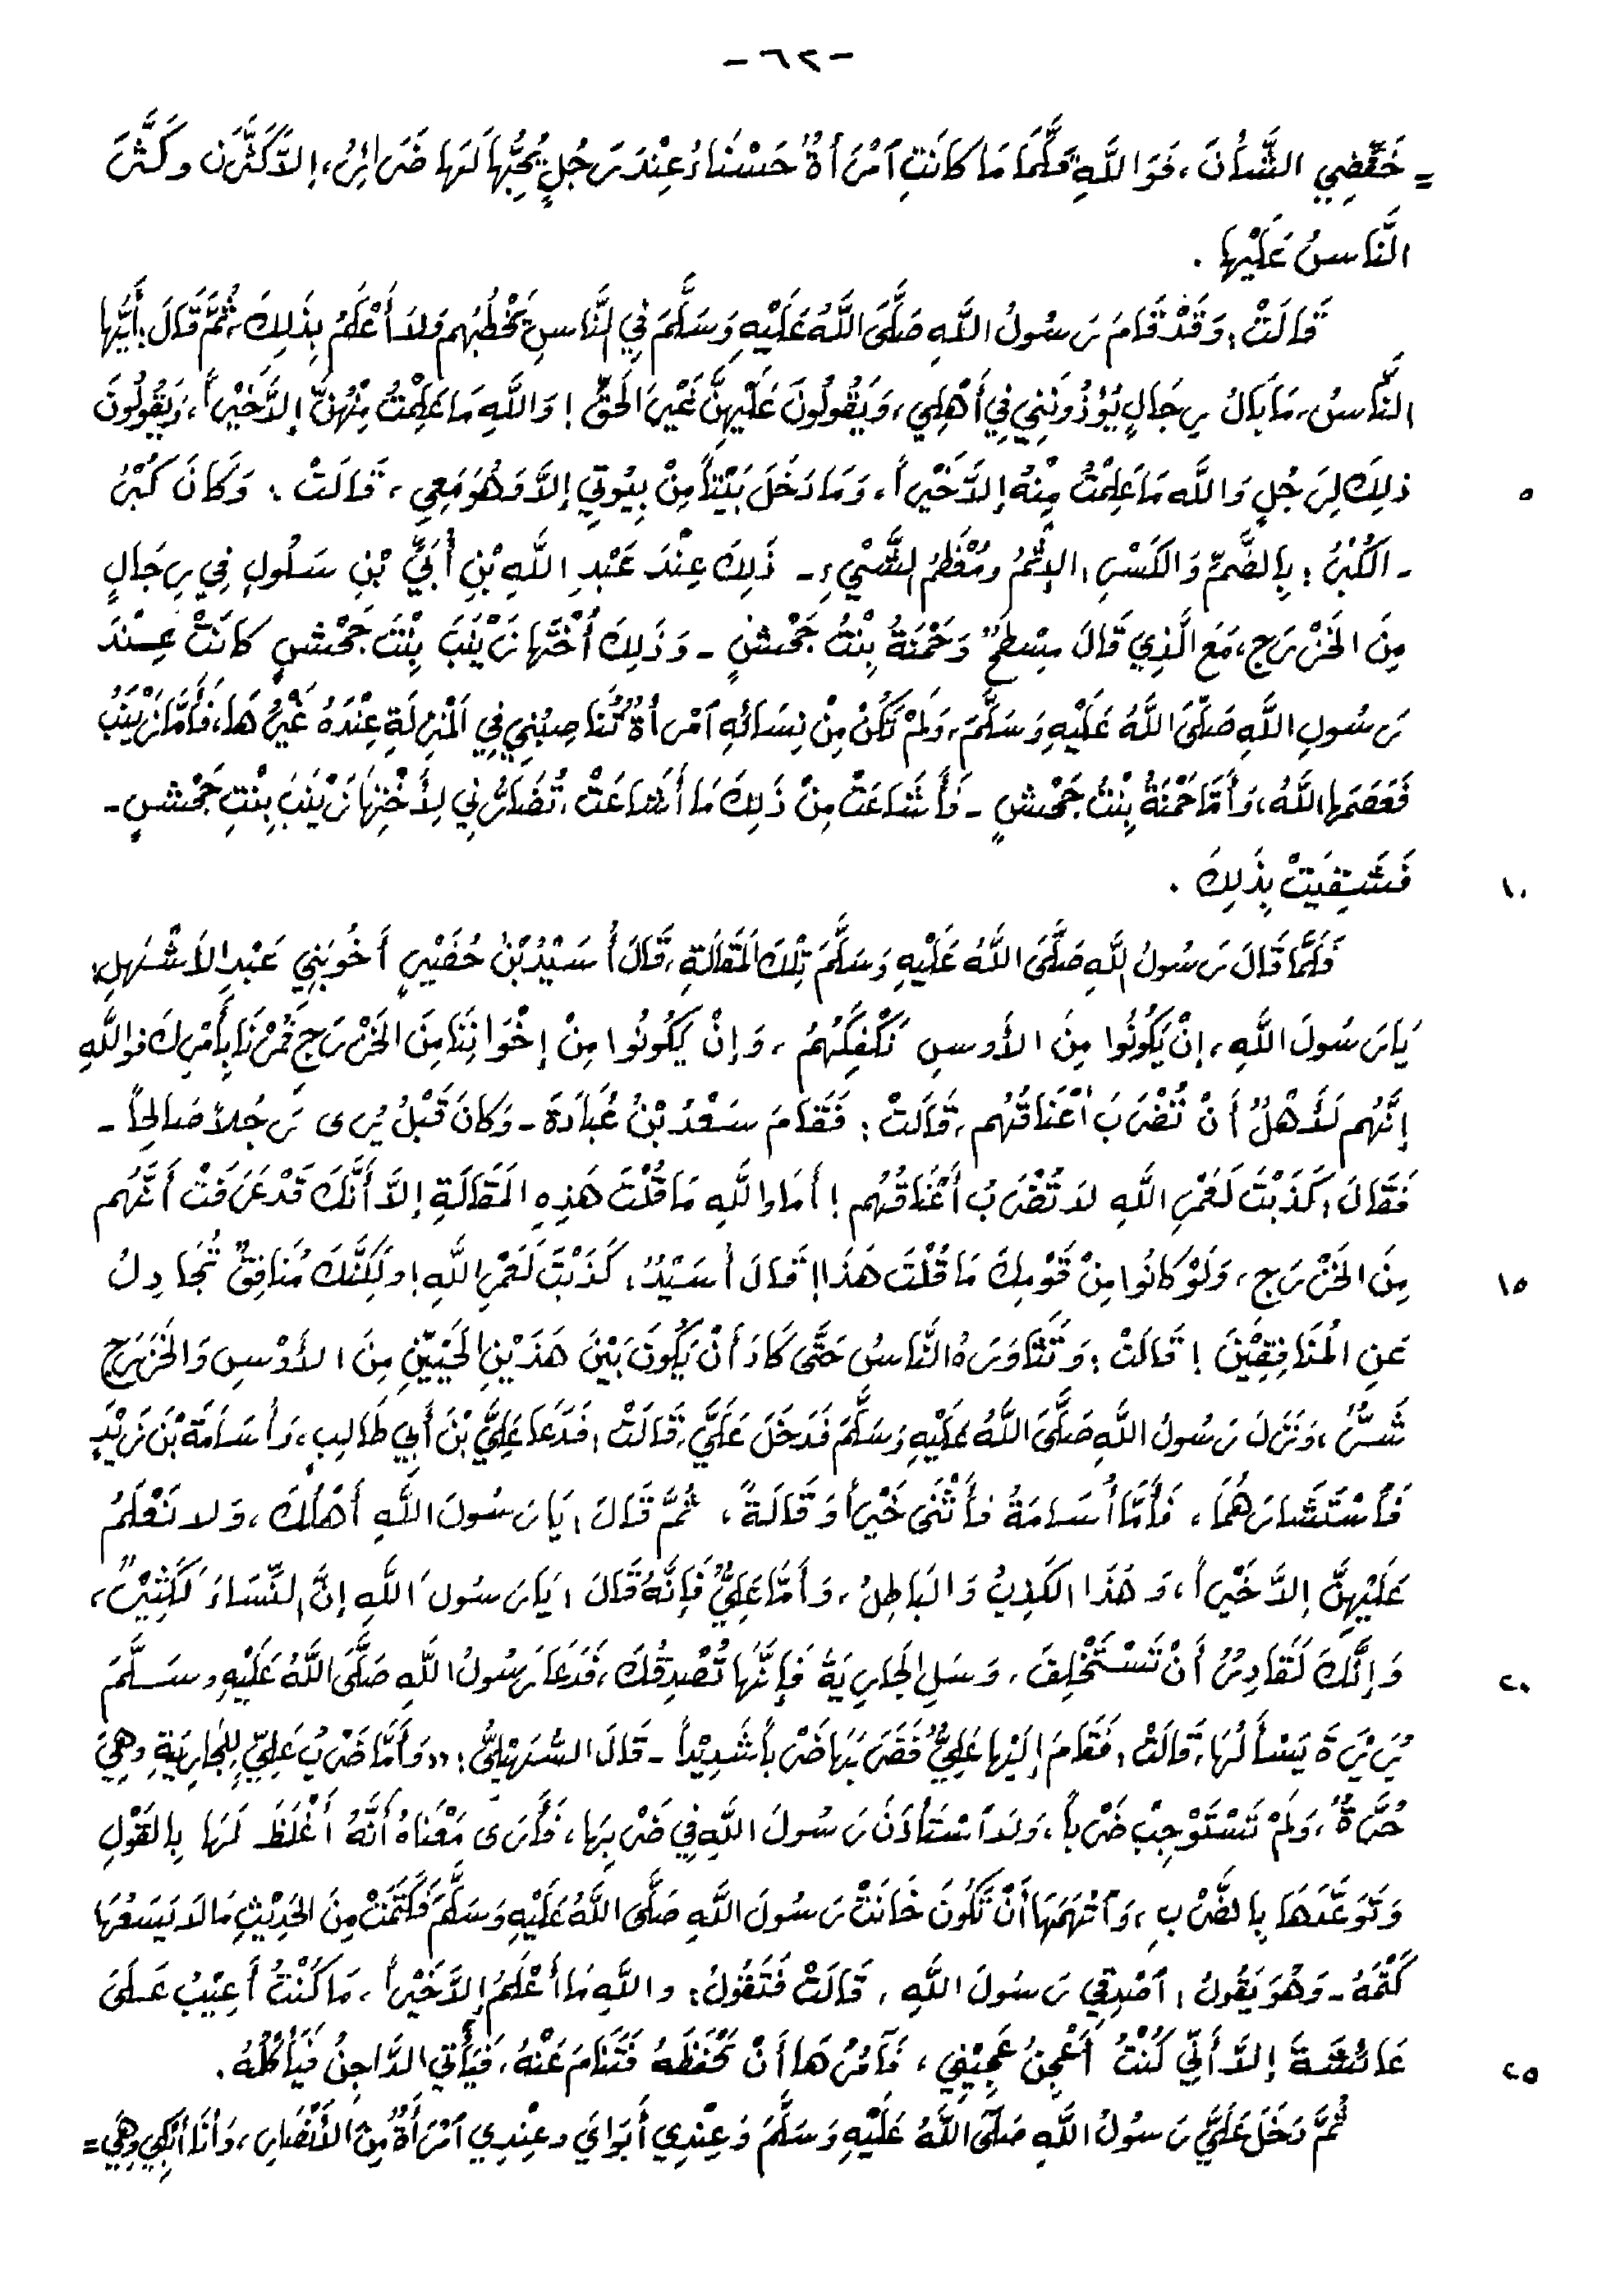 -٦٢-
= خَفِّضِي الشَّأْنَ، فَوَاللَّهِ لَقَلَّمَا مَا كَانَتِ ٱمْرَأَةٌ حَسْنَاءُ عِنْدَ رَجُلٍ يُحِبُّهَا لَهَا ضَرَائِرُ، إِلاَّ كَثَّرْنَ وكَثَّرَ
النَّاسُ عَلَيْها .
قَالَتْ: وَقَدْ قَامَ رَسُولُ اللَّهِ صَلَّى اللَّهُ عَلَيْهِ وَسَلَّمَ فِي النَّاسِ يَخْطُبُهم وَلاَ أَعْلَمُ بِذَلِكَ، ثُمَّ قَالَ: أَيُّها
النَّاسُ، مَا بَالُ رِجَالٍ يُؤْذُونَنِي فِي أَهْلِي، وَيَقُولُونَ عَلَيْهِنَّ غَيْرَ الحَقِّ! وَاللَّهِ مَا عَلِمْتُ مِنْهُنَّ إِلاَّ خَيْراً، وَيَقُولُونَ
ذلِكَ لِرَجُلٍ وَاللَّه مَا عَلِمْتُ مِنْهُ إِلاَّ خَيْراً، وَمَا دَخَلَ بَيْتاً مِنْ بِيُوتِي إِلاَّ وَهُوَ مَعِي، قَالَتْ: وَكَانَ كُبْرُ
٥
- الكُبْرُ: بِالضَّمِّ وَالكَسْرِ، الإِثْمُ ومُعْظَمُ الشَّيْءِ - ذَلِكَ عِنْدَ عَبْدِ اللَّهِ بْنِ أُبَيِّ بْنِ سَلُولٍ فِي رِجَالٍ
مِنَ الخَزْرَجِ، مَعَ الَّذِي قَالَ مِسْطَحٌ وَحَمْنَةُ بِنْتُ جَحْشٍ - وَذَلِكَ أُخْتَها زَيْنَبَ بِنْتَ جَحْشٍ كَانَتْ عِنْدَ
رَسُولِ اللَّهِ صَلَّى اللَّهُ عَلَيْهِ وَسَلَّمَ، وَلَمْ تَكُنْ مِنْ نِسَائِهِ ٱمْرَأَةٌ تُنَاصِبُنِي فِي المَنْزِلَةِ عِنْدَهُ غَيْرُهَا، فَأَمَّا زَيْنَبُ
فَعَصَمَها اللَّهُ، وَأَمَّا حَمْنَةُ بِنْتُ جَحْشٍ - فَأَشَاعَتْ مِنْ ذَلِكَ مَا أَشَاعَتْ، تُضَارُّنِي لِأُخْتِهَا زَيْنَبَ بِنْتِ جَحْشٍ -
فَشَقِيَتْ بِذَلِكَ .
١٠
فَلَمَّا قَالَ رَسُولُ اللَّهِ صَلَّى اللَّهُ عَلَيْهِ وَسَلَّمَ تِلْكَ المَقَالَةِ، قَالَ أُسَيْدُ بْنُ حُضَيْرٍ أَخُو بَنِي عَبْدِ الأَشْهَلِ:
يَا رَسُولَ اللَّهِ، إِنْ يَكُونُوا مِنَ الأَوسِ نَكْفِكَهُمُ، وَإِنْ يَكُونُوا مِنْ إِخْوَانِنَا مِنَ الخَزْرَجِ فَمُرْنَا بِأَمْرِكَ فواللَّهِ
إِنَّهُم لَأَهْلٌ أَنْ تُضْرَبَ أَعْنَاقُهُم، قَالَتْ: فَقَامَ سَعْدُ بْنُ عُبَادَةَ - وَكَانَ قَبْلُ يُرى رَجُلاً صَالِحاً -
فَقَالَ: كَذَبْتَ لَعَمْرِ اللَّهِ لاَ تُضْرَبُ أَعْنَاقُهُم! أَمَا واللَّهِ مَا قُلْتَ هَذِهِ المَقَالَةِ إِلاَّ أَنَّكَ قَدْ عَرَفْتَ أَنَّهُم
مِنَ الخَزْرَجِ، وَلَوْ كَانُوا مِنْ قَوْمِكَ مَا قُلْتَ هَذَا! قَالَ أُسَيْدُ: كَذَبْتَ لَعَمْرُ اللَّهِ! ولَكِنَّكَ مُنَافِقٌ تُجَادِلُ
١٥
عَنِ المُنَافِقِيْنَ! قَالَتْ: وَتَثَاوَرَهُ النَّاسُ حَتَّى كَادَ أَنْ يَكُونَ بَيْنَ هَذَيْنِ الحَيَّيْنِ مِنَ الأَوْسِ وَالخَزْرَجِ
شَرٌّ، وَنَزَلَ رَسُولُ اللَّهِ صَلَّى اللَّهُ عَلَيْهِ وَسَلَّمَ فَدَخَلَ عَلَيَّ، قَالَتْ: فَدَعَا عَلِيَّ بْنَ أَبِي طَالِبٍ، وَأُسَامَةَ بْنَ زَيْدٍ
فَٱسْتَشَارَهُمَا، فَأَمَّا أُسَامَةُ فأَثْنَى خَيْراً وَقَالَةً، ثُمَّ قَالَ: يَا رَسُولَ اللَّهِ أَهْلَكَ، وَلا نَعْلَمُ
عَلَيْهِنَّ إِلاَّ خَيْراً، وَهَذَا الكَذِبُ وَالبَاطِلُ، وَأَمَّا عَلِيٌّ فَإِنَّهُ قَالَ: يَا رَسُولَ اللَّهِ إِنَّ النِّسَاءَ لَكَثِيْرٌ،
وَإِنَّكَ لَقَادِرٌ أَنْ تَسْتَخْلِفَ، وَسَلِ الجَارِيَةَ فَإِنَّهَا تُصْدِقُكَ، فَدَعَا رَسُولُ اللَّهِ صَلَّى اللَّهُ عَلَيْهِ وسَلَّمَ
٢٠
بُرَيْرَةَ يَسْأَلُهَا، قَالَتْ: فَقَامَ إِلَيْها عَلِيٌّ فَضَرَبَهَا ضَرْباً شَدِيْداً - قَالَ السُّهَيْلِيُّ: «وَأَمَّا ضَرْبُ عَلِيٍّ لِلجَارِيَةِ وهِيَ
حُرَّةٌ، وَلَمْ تَسْتَوْجِبْ ضَرْباً، وَلاَ ٱسْتَأْذَنَ رَسُولَ اللَّهِ فِي ضَرْبِهَا، فَأَرَى مَعْنَاهُ أَنَّهُ أَغْلَظَ لَهَا بِالقَوْلِ
وَتَوَعَّدَهَا بِالضَّرْبِ، وَٱتَّهَمَهَا أَنْ تَكُونَ خَانَتْ رَسُولَ اللَّهِ صَلَّى اللَّهُ عَلَيْهِ وَسَلَّمَ فَكَتَمَتْ مِنَ الحَدِيْثِ مَا لاَ يَسَعُهَا
كَتْمُهُ - وَهُوَ يَقُولُ: ٱصْدِقِي رَسُولَ اللَّهِ، قَالَتْ فَتَقُولُ: واللَّهِ مَا أَعْلَمُ إِلاَّ خَيْراً، مَا كُنْتُ أَعِيْبُ عَلَى
عَائشَةَ إِلاَّ أَنِّي كُنْتُ أَعْجِنُ عَجِيْنِي، فَآمُرُهَا أَنْ تَحْفَظَهُ فَتَنَامَ عَنْهُ، فَيَأْتِي الدَّاجِنُ فَيَأْكُلُهُ.
٢٥
ثُمَّ دَخَلَ عَلَيَّ رَسُولُ اللَّهِ صَلَّى اللَّهُ عَلَيْهِ وَسَلَّمَ وَعِنْدِي أَبَوَايَ وعِنْدِي ٱمْرَأَةٌ مِنَ الأَنْصَارِ، وَأَنَا أَبْكِي وَهِيَ =